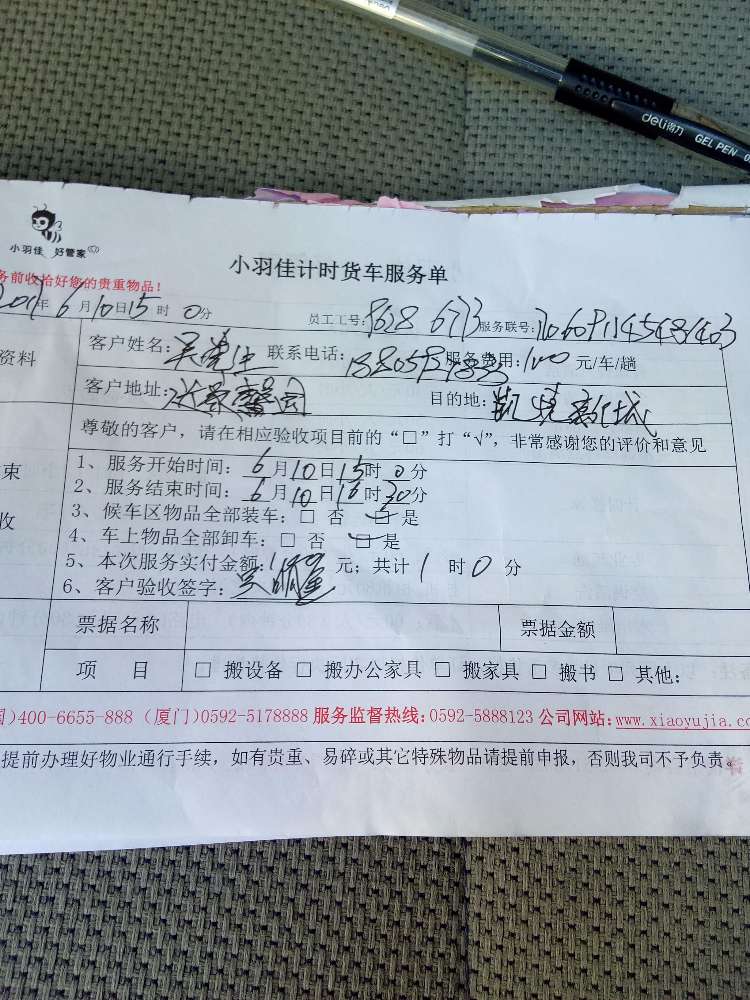 deli得力 GEL PEN
小羽佳 好管家
小羽佳计时货车服务单
务前收拾好您的贵重物品！
年 6月10日15时0分 员工工号：8628 6773 服务联号：
资料 客户姓名：吴先生 联系电话： 服务费用：100元/车/趟
客户地址： 目的地：
尊敬的客户，请在相应验收项目前的“□”打“√”，非常感谢您的评价和意见
束 1、服务开始时间：6月10日15时0分
2、服务结束时间：6月10日16时30分
收 3、候车区物品全部装车：□ 否 □ 是
4、车上物品全部卸车：□ 否 □ 是
5、本次服务实付金额： 元；共计1时0分
6、客户验收签字：
票据名称 票据金额
项 目 □ 搬设备 □ 搬办公家具 □ 搬家具 □ 搬书 □ 其他：
)400-6655-888（厦门)0592-5178888 服务监督热线：0592-5888123 公司网站：www.xiaoyujia.co
提前办理好物业通行手续，如有贵重、易碎或其它特殊物品请提前申报，否则我司不予负责。